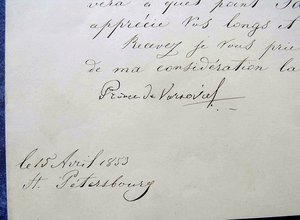 vera à quel point
apprécie Vos longs et
Recevez je Vous prie
de ma considération la
Prince de Varsovie
le 15 Avril 1853
St. Pétersbourg